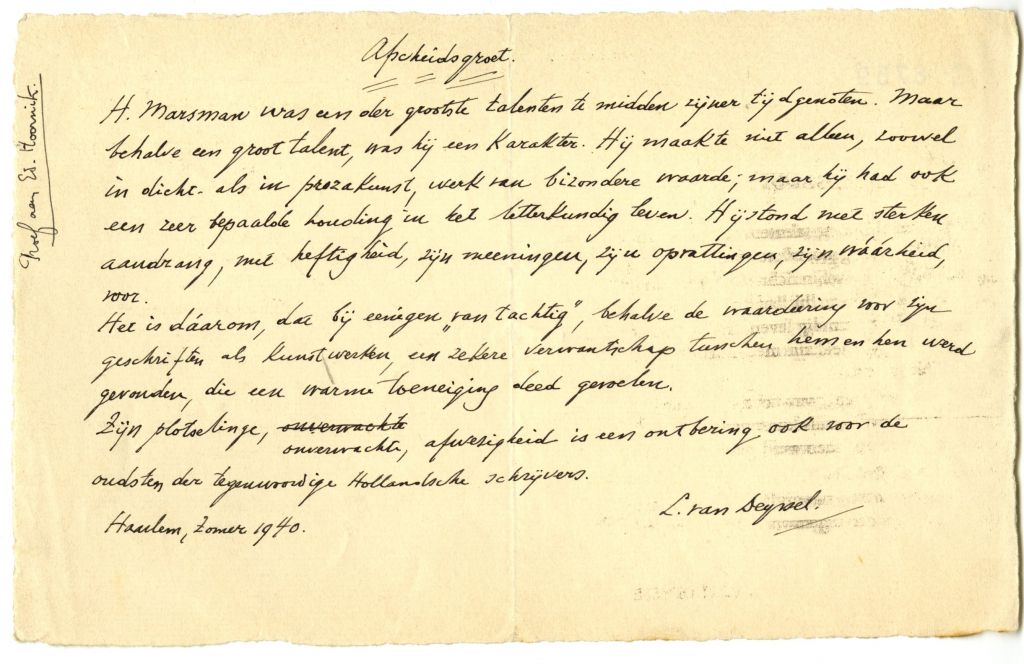 Afscheidsgroet.
H. Marsman was een der grootste talenten te midden zijner tijdgenoten. Maar
behalve een groot talent, was hij een Karakter. Hij maakte niet alleen, zoowel
in dicht- als in prozakunst, werk van bizondere waarde; maar hij had ook
een zeer bepaalde houding in het letterkundig leven. Hij stond met sterken
aandrang, met heftigheid, zijn meeningen, zijn opvattingen, zijn wáárheid,
voor.
Het is dáarom, dat bij eenigen „van tachtig”, behalve de waardering voor zijn
geschriften als Kunstwerken, een zekere verwantschap tusschen hem en hen werd
gevonden, die een warme toeneiging deed gevoelen.
Zijn plotselinge, onverwachte
onverwachte, afwezigheid is een ontbering ook voor de
oudsten der tegenwoordige Hollandsche schrijvers.
L. van Deyssel.
Haarlem, Zomer 1940.
Proef aan Ed. Hoornik.